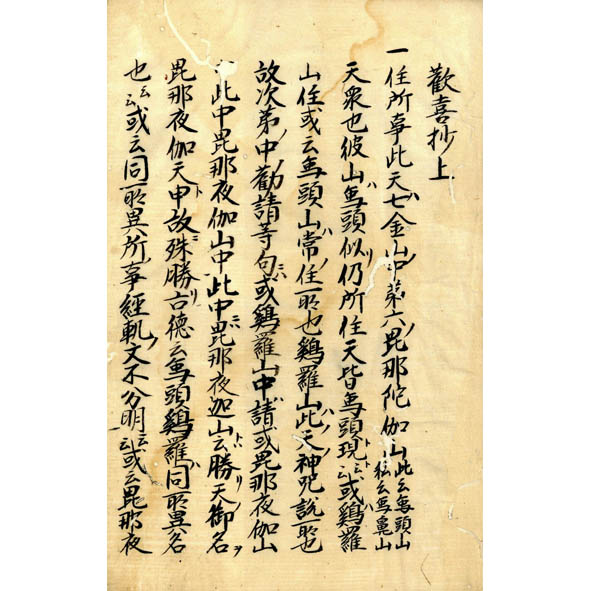 歡喜抄上
一住所事此天ハ七金山ノ中ノ第六ノ毘那陀伽山此云馬頭山 私云馬鬼山
天衆也彼山馬頭ニ似リ仍所住天皆馬頭現ト云云或鷄羅
山住或云馬頭山ハ常ノ住所也鷄羅山ハ此天ノ神呪說所也
故次第ノ中ノ勸請等句ニハ或鷄羅山中請或毘那夜伽山
此中毘那夜伽山中此中ニ毘那夜迦山云ハ勝天ノ御名ヲ
毘那夜伽天ト申故殊勝ナリ古德云馬頭鷄羅ハ同所異名
也云云或云同所異所ノ事經軌ノ文不分明云云或云毘那夜